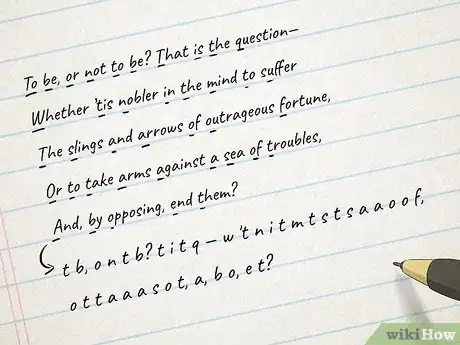 To be, or not to be? That is the question—
Whether 'tis nobler in the mind to suffer
The slings and arrows of outrageous fortune,
Or to take arms against a sea of troubles,
And, by opposing, end them?
t b, o n t b? t i t q — w 't n i t m t s t s a a o o f,
o t t a a a s o t, a, b o, e t?
wikiHow